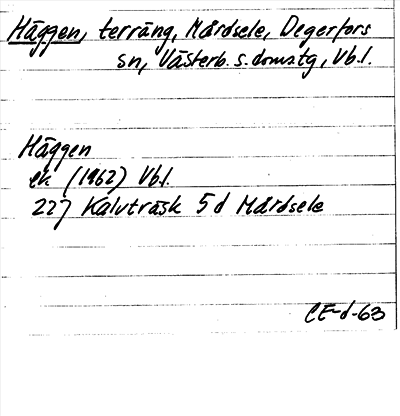 Häggen, terräng, Mårdsele, Degerfors
sn, Västerb. s. domstg, Vb.l.
Häggen
ek (1962) Vb.l.
22J Kalvträsk 5d Mårdsele
CE-d-63